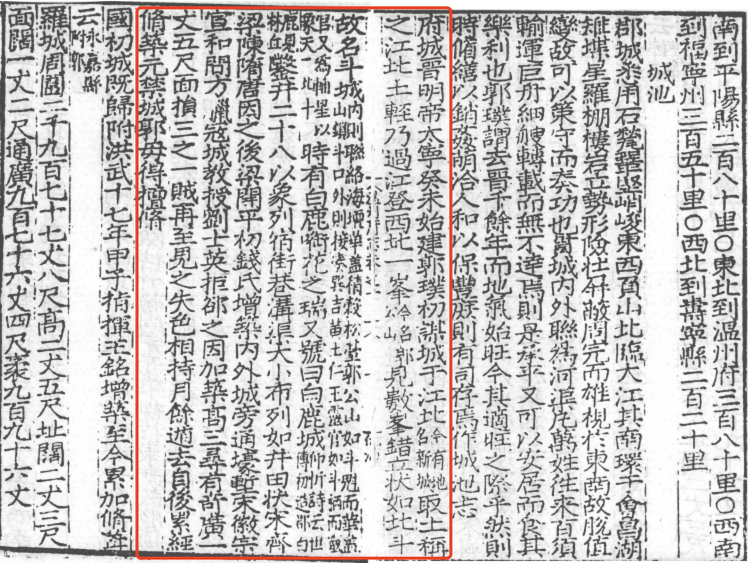 南到平陽縣二百八十里○東北到溫州府三百八十里○西南
到福寧州三百五十里○西北到壽寧縣二百二十里
城池
郡城悉用石甃峭峻東西負山北臨大江其南環于會昌湖
雉堞星羅棚樓岩立勢形險壯屏敝周完而雄視於東西故脫值
變故可以策守而奏功也城內外聯為河渠凡萬姓往來百須
輸運巨舟細艘轉載而無不達焉則是承平又可以安居而食其
樂利也郭璞謂去晉千餘年而地氣始旺今其適旺之際乎然則
時脩繕以銷姦萌洽人和以保豐族則有司存焉作城池志
府城晉明帝太寧癸未始建郭璞初謀城于江北今有地名新城取土稱
之江北土輕乃過江登西北一峯今名郭公山見數峯錯立狀如北斗
故名斗城城內則聯絡海壇華盖積穀松臺郭公山如斗魁而華盖山鎖斗口外則接湊巽吉黄土仁王靈官如斗柄而靈
官又為輔星以象天北斗時有白鹿啣花之瑞又號曰白鹿城傳初造郡白鹿見
鑿井二十八以象列宿街巷溝渠大小布列如井田狀宋齊
梁陳隋唐因之後梁開平初錢氏增築內外城旁通壕塹宋徽宗
宣和間方臘寇城教授劉士英拒郤之因加築高三尋有許廣一
丈五尺面損三之一賊再至見之失色相持月餘遁去自後累經
脩築元禁城郭毋得擅脩
國初城既歸附洪武十七年甲子指揮王銘增築至今累加脩葺
云永嘉縣附郭
羅城周圍二千九百七十七丈八尺高二丈五尺址闊一丈三尺
面闊一丈二尺通廣九百七十六丈四尺袤九百九十六丈